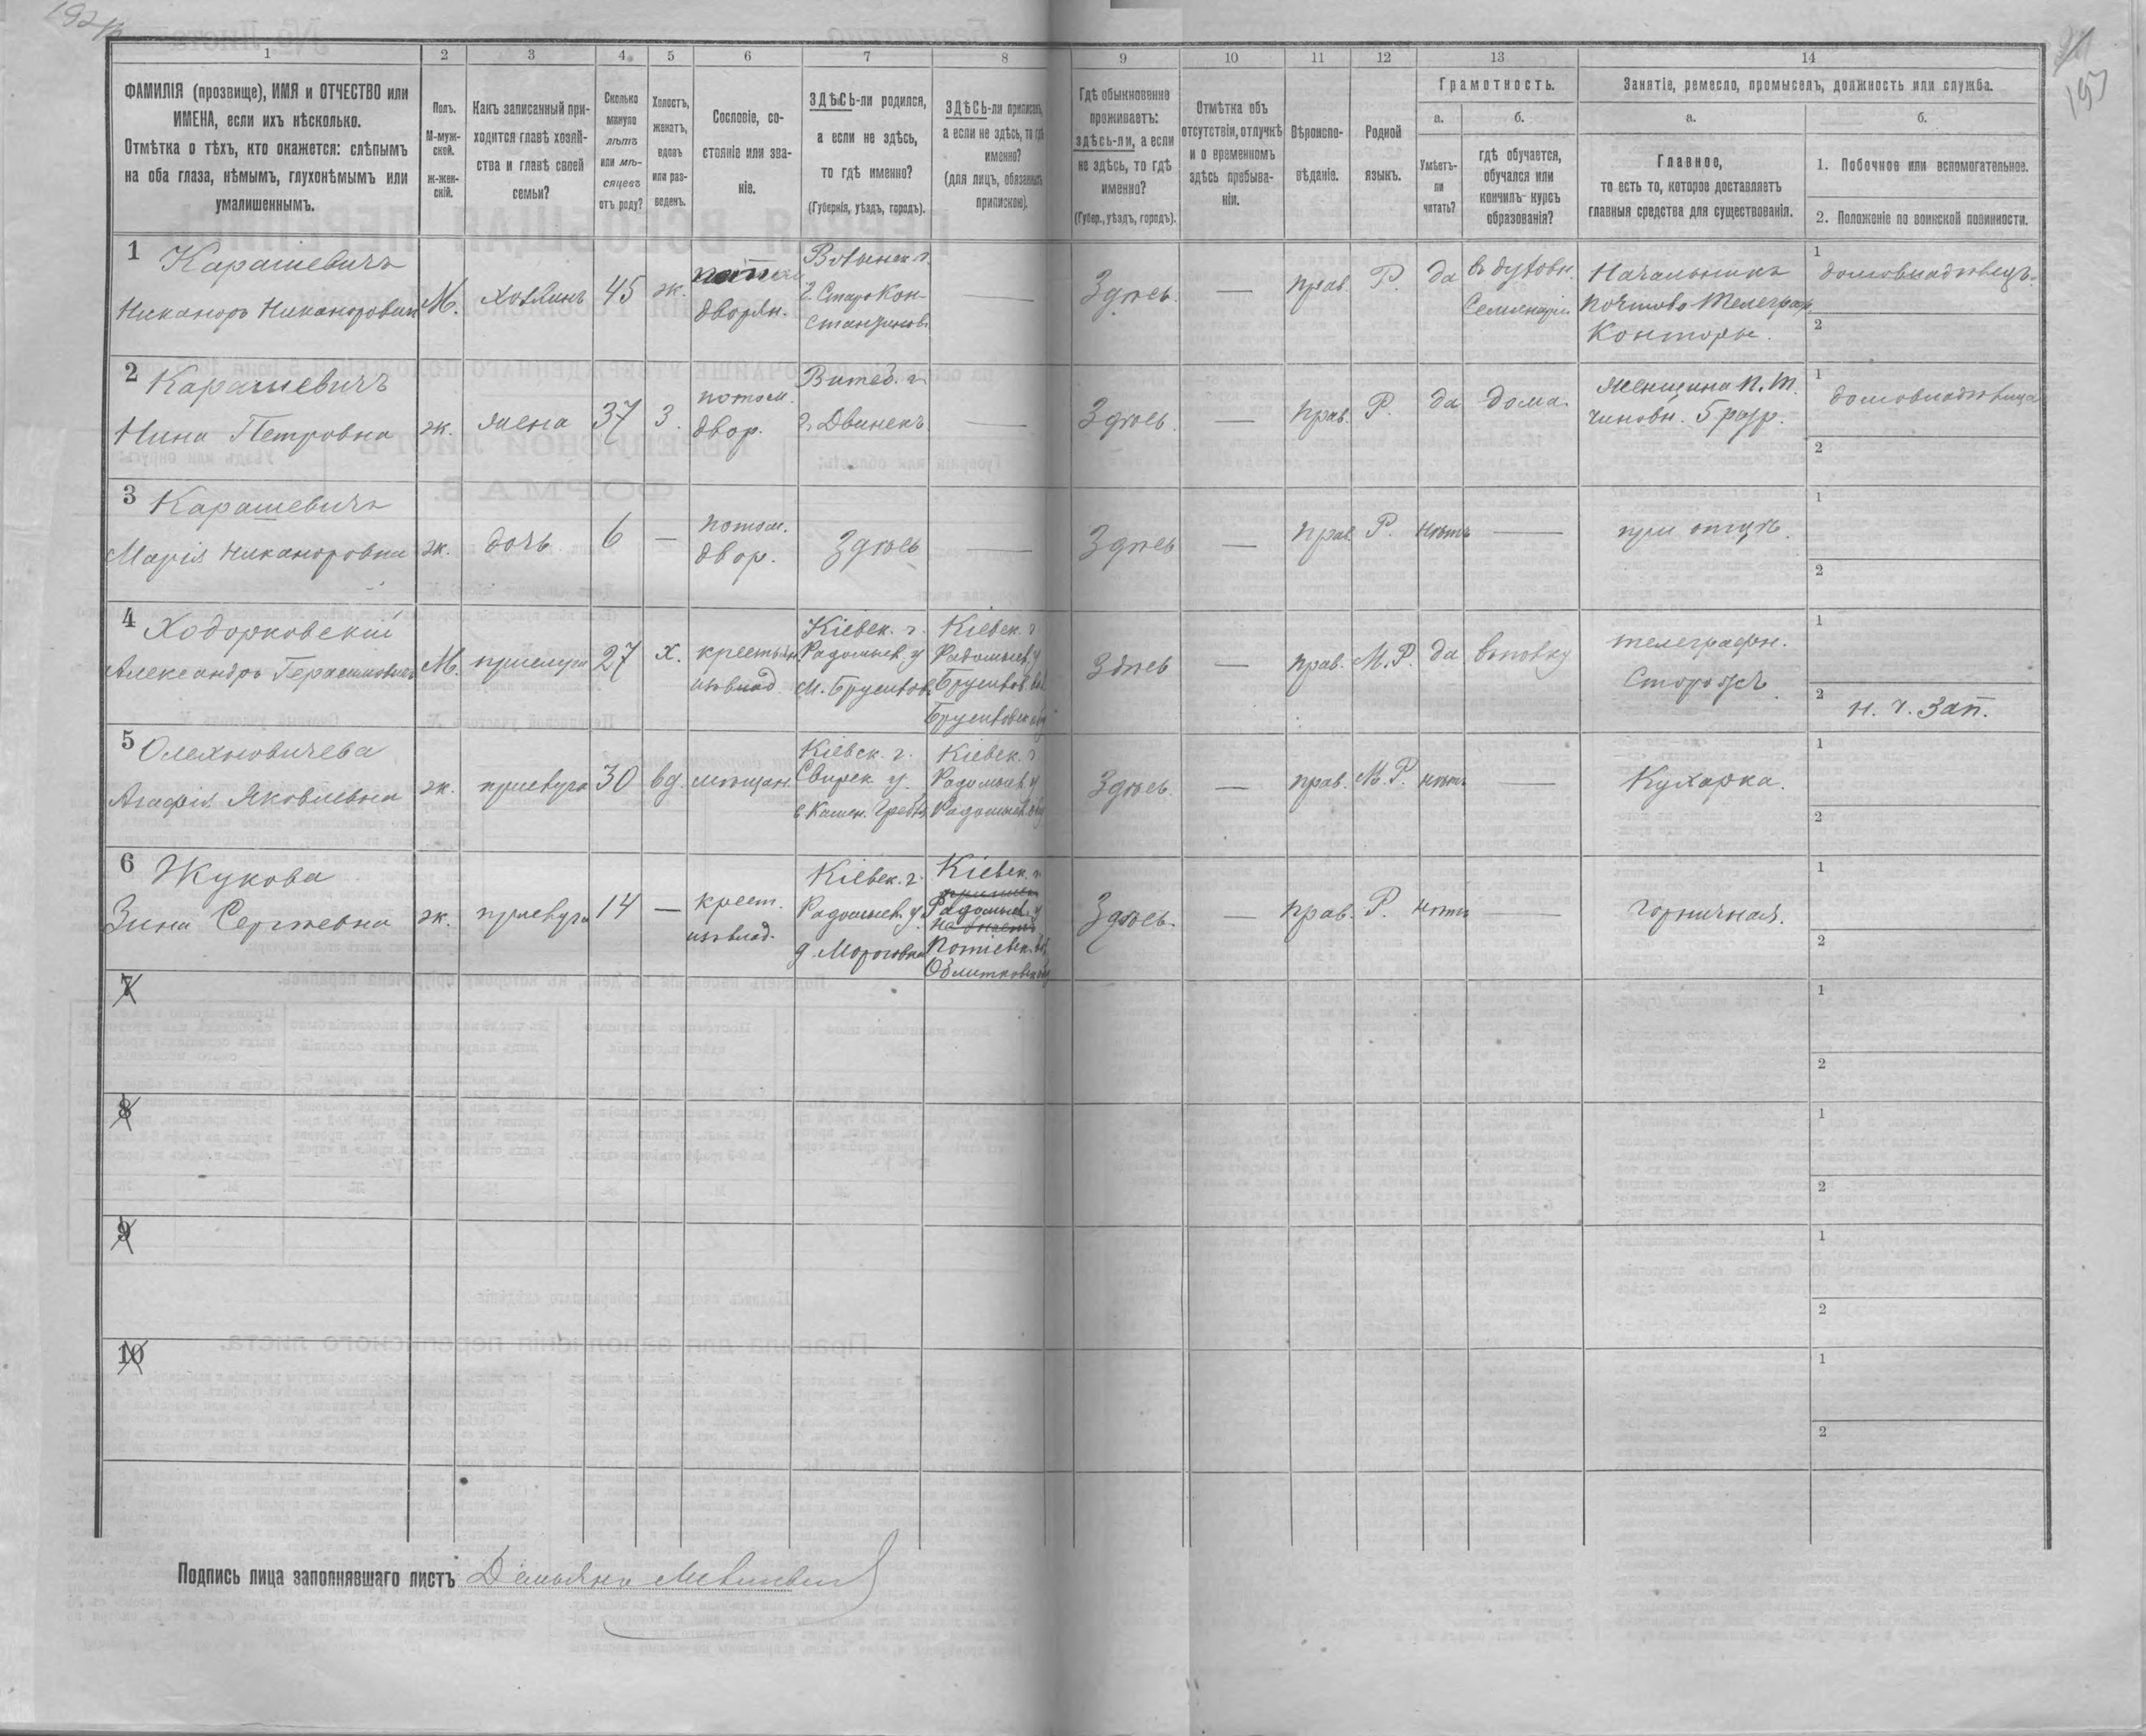 1 2 3 4 5 6 7 8 9 10 11 12 13 14
ФАМИЛІЯ (прозвище), ИМЯ и ОТЧЕСТВО или
ИМЕНА, если ихъ нѣсколько.
Отмѣтка о тѣхъ, кто окажется: слѣпымъ
на оба глаза, нѣмымъ, глухонѣмымъ или
умалишеннымъ.
Полъ.
М-муж-
ской.
ж-жен-
скій.
Какъ записанный при-
ходится главѣ хозяй-
ства и главѣ своей
семьи?
Сколько
минуло
лѣтъ
или мѣ-
сяцевъ
отъ роду?
Холостъ,
женатъ,
вдовъ
или раз-
веденъ.
Сословіе, со-
стояніе или зва-
ніе.
ЗДѢСЬ-ли родился,
а если не здѣсь,
то гдѣ именно?
(Губернія, уѣздъ, городъ).
ЗДѢСЬ-ли приписанъ,
а если не здѣсь, то гдѣ
именно?
(для лицъ, обязанныхъ
припискою).
Гдѣ обыкновенно
проживаетъ:
здѣсь-ли, а если
не здѣсь, то гдѣ
именно?
(Губер., уѣздъ, городъ).
Отмѣтка объ
отсутствіи, отлучкѣ
и о временномъ
здѣсь пребыва-
ніи.
Вѣроиспо-
вѣданіе.
Родной
языкъ.
Грамотность.
а.
Умѣетъ-
ли
читать?
б.
гдѣ обучается,
обучался или
кончилъ курсъ
образованія?
Занятіе, ремесло, промыселъ, должность или служба.
а.
Главное,
то есть то, которое доставляетъ
главныя средства для существованія.
б.
1. Побочное или вспомогательное.
2. Положеніе по воинской повинности.
1 Карашевичъ
Никаноръ Никаноровичъ
М.
хозяинъ
45
ж.
дворян.
Волынск. г.
г. Старокон-
стантиновъ
—
Здѣсь.
—
прав.
Р.
да
въ духовн.
Семинаріи
Начальникъ
Почтово-Телеграф.
Конторы.
1 домовладѣлецъ.
2
2 Карашевичъ
Нина Петровна
ж.
жена
37
З.
потом.
двор.
Витеб. г.
г. Двинскъ
—
Здѣсь.
—
прав.
Р.
да
дома.
Женщина П. Т.
чиновн. 5 разр.
1 домовладѣлица
2
3 Карашевичъ
Марія Никаноровна
ж.
дочь
6
—
потом.
двор.
Здѣсь
—
Здѣсь
—
прав.
Р.
нѣтъ
—
при отцѣ.
1
2
4 Ходорковскій
Александръ Герасимовичъ
М.
прислуга
27
х.
крестьян.
изъ влад.
Кіевск. г.
Радомысл. у
м. Брусиловъ
Кіевск. г
Радомысл. у
Брусилов. вол
Брусиловск общ
Здѣсь
—
прав.
М.Р.
да
телеграфн.
Сторожъ.
1
2 н. ч. Зап.
5 Олехновичева
Агафія Яковлевна
ж.
прислуга
30
вд.
мѣщан.
Кіевск. г.
Сквирск. у.
с Камен. Гребля
Кіевск. г
Радомысл. у
Здѣсь
—
прав.
М.Р.
нѣтъ
—
Кухарка.
1
2
6 Жукова
Зина Сергѣевна
ж.
прислуга
14
—
крест.
изъ влад.
Кіевск. г.
Радомысл. у.
Кіевск. г.
Радомысл. у
Здѣсь.
—
прав.
Р.
нѣтъ
—
горничная.
1
2
7
1
2
8
1
2
9
1
2
10
1
2
Подпись лица заполнявшаго листъ